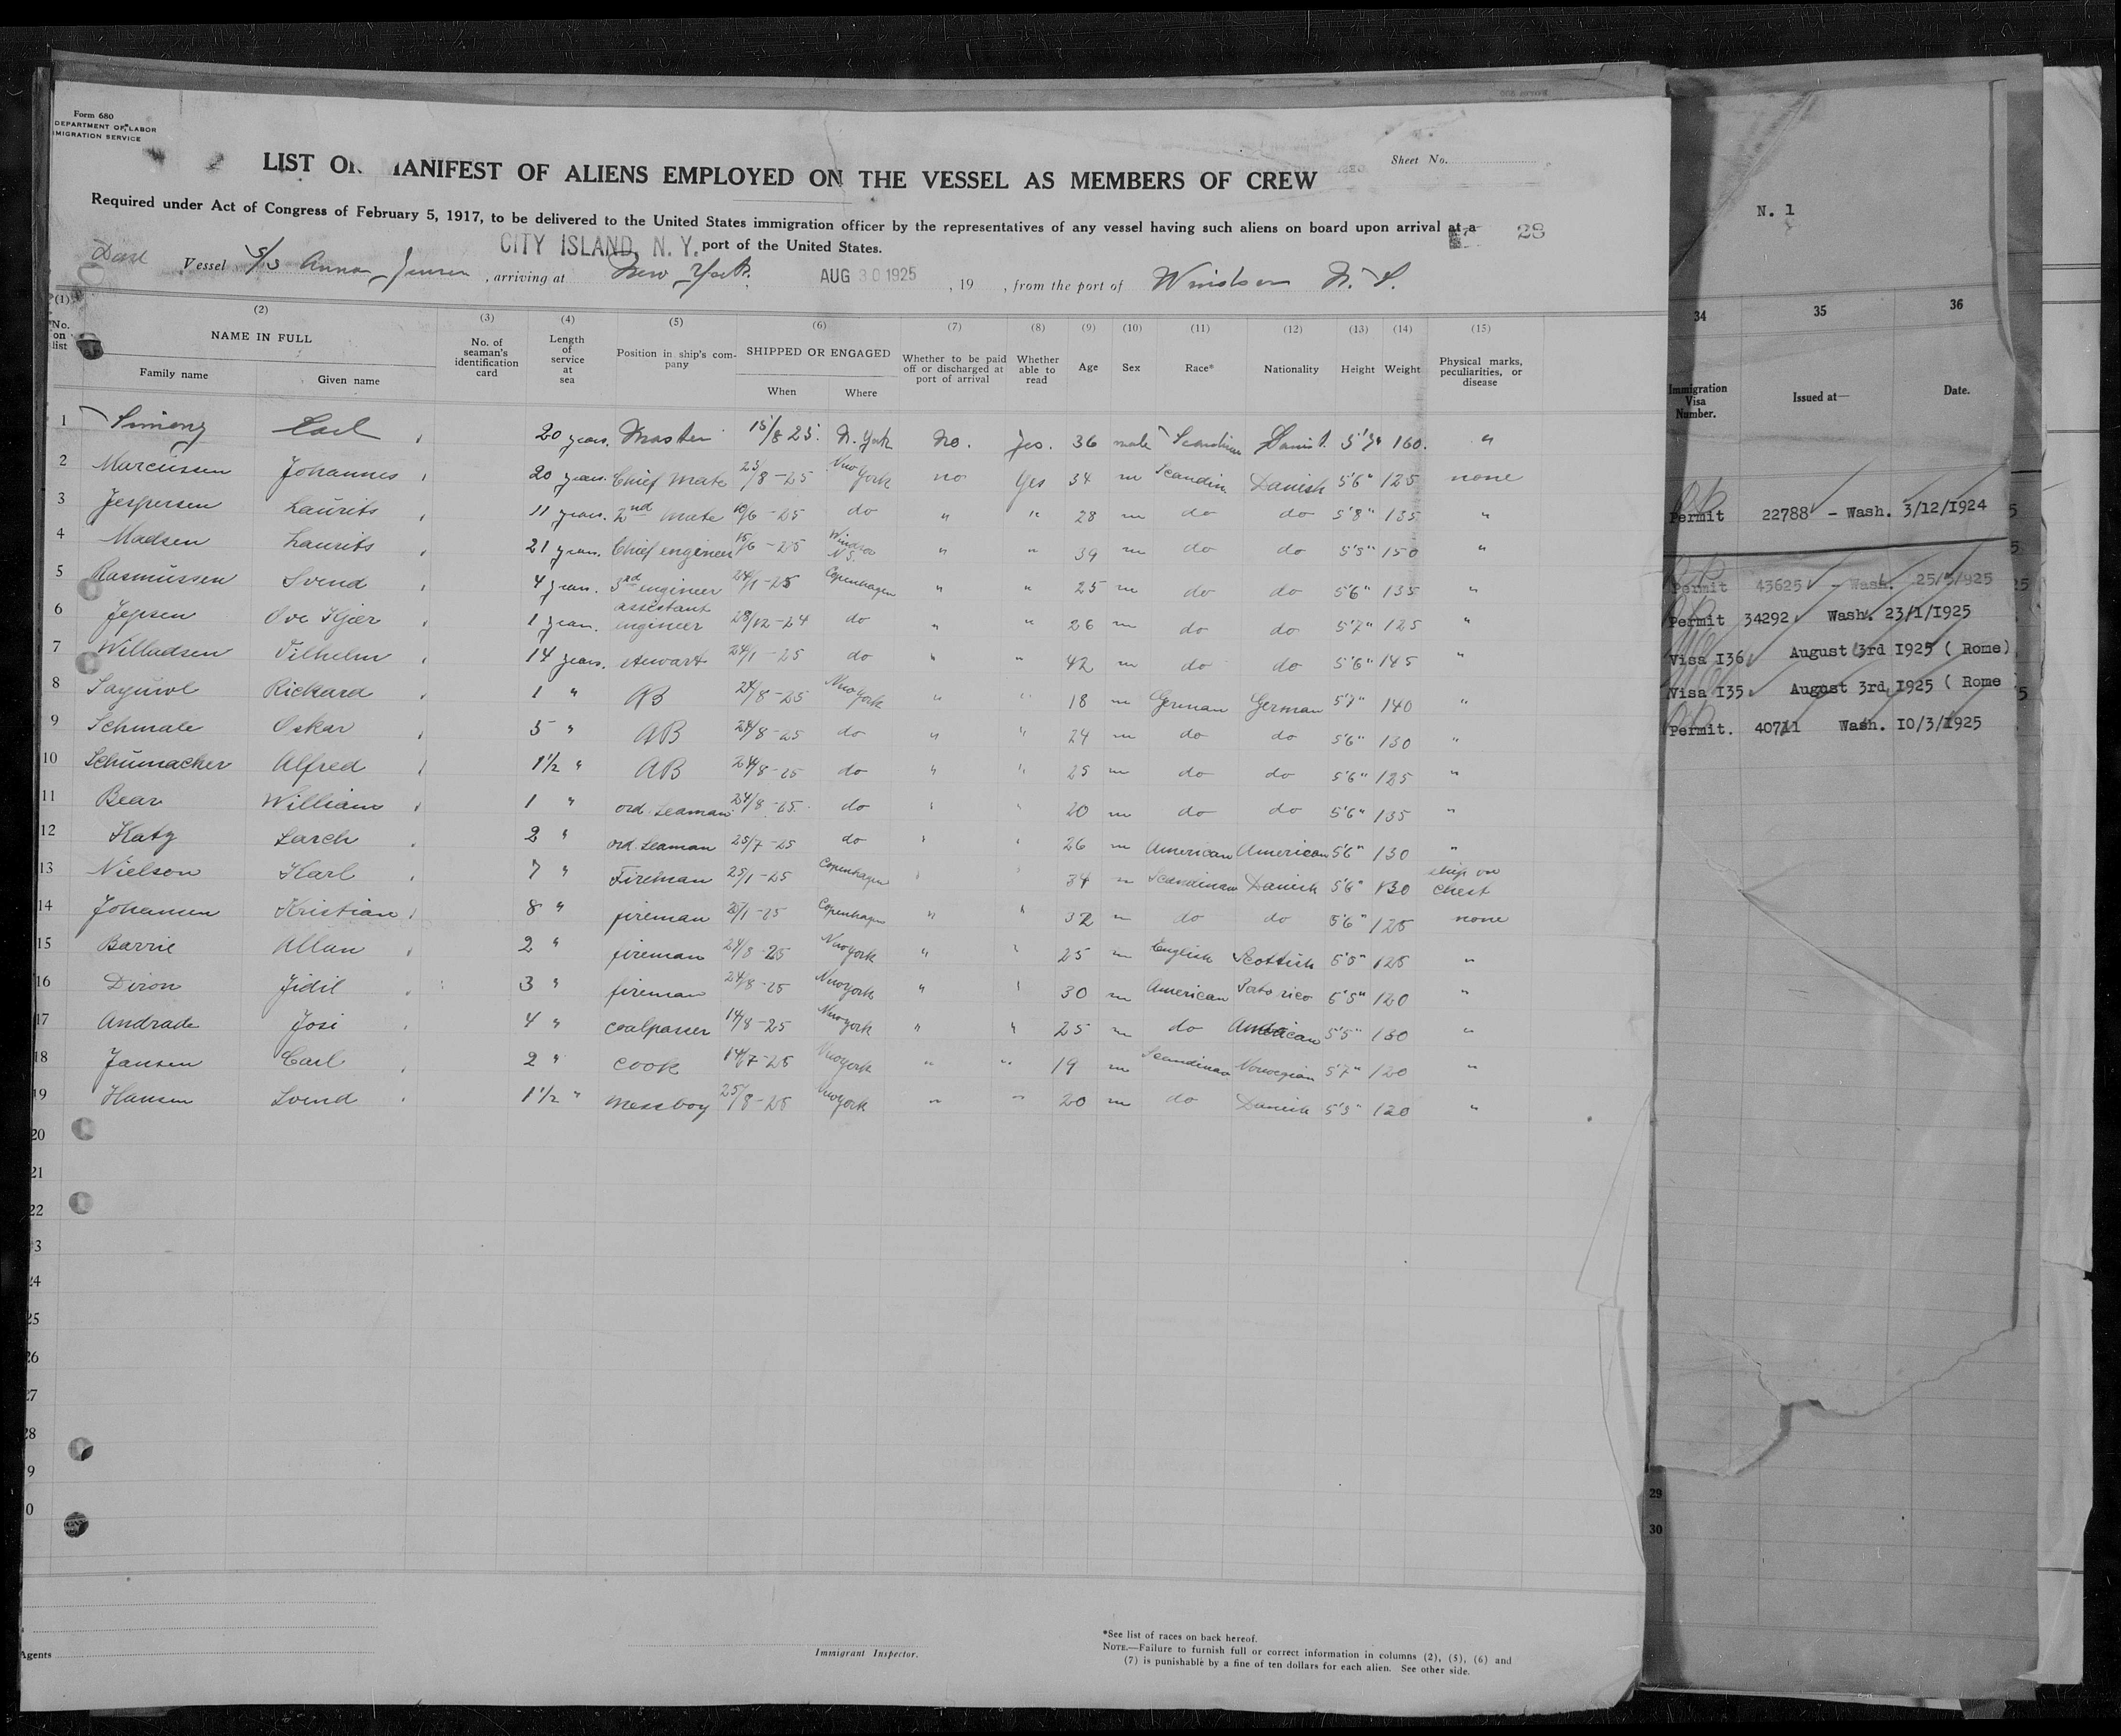 Form 680
DEPARTMENT OF LABOR
IMMIGRATION SERVICE
Sheet No.
LIST OR MANIFEST OF ALIENS EMPLOYED ON THE VESSEL AS MEMBERS OF CREW
Required under Act of Congress of February 5, 1917, to be delivered to the United States immigration officer by the representatives of any vessel having such aliens on board upon arrival at a
28
CITY ISLAND, N. Y. port of the United States.
Vessel S/S Anna Jensen, arriving at New York. AUG 30 1925, 19 , from the port of Windsor N. S.
(1) (2) (3) (4) (5) (6) (7) (8) (9) (10) (11) (12) (13) (14) (15)
No. on list NAME IN FULL Family name Given name No. of seaman's identification card Length of service at sea Position in ship's company SHIPPED OR ENGAGED When Where Whether to be paid off or discharged at port of arrival Whether able to read Age Sex Race* Nationality Height Weight Physical marks, peculiarities, or disease
1 Simony Carl 20 years. Master 15/8 25. N. York No. Yes. 36 male Danish 160. "
2 Marcussen Johannes 20 years. Chief Mate 23/8-25 New York no Yes 34 m Scandin. Danish 5'6" 125 none
3 Jespersen Laurits 11 years. 2nd Mate 10/6-25 do " " 28 m do do 5'8" 135 "
4 Madsen Laurits 21 years. Chief engineer 15/6-25 Windsor N.S. " " 39 m do do 5'5" 150 "
5 Rasmussen Svend 4 years. 3rd engineer 24/1-25 Copenhagen " " 25 m do do 5'6" 135 "
6 Jepsen Ove Kjær 1 year. assistant engineer 28/12-24 do " " 26 m do do 5'7" 125 "
7 Willadsen Vilhelm 14 years. stewart 24/1-25 do " " 42 m do do 5'6" 145 "
8 Rickard 1 " AB 24/8-25 New York " " 18 m German German 5'7" 140 "
9 Schmale Oskar 5 " AB 24/8-25 do " " 24 m do do 5'6" 130 "
10 Schumacher Alfred 1½ " AB 24/8-25 do " " 25 m do do 5'6" 125 "
11 Bear William 1 " ord. Seaman 24/8-25. do " " 20 m do do 5'6" 135 "
12 Katz Larch 2 " ord. Seaman 25/7-25 do " " 26 m American American 5'6" 130 "
13 Nielson Karl 7 " Fireman 25/1-25 Copenhagen " " 34 m Scandinav Danish 5'6" 130 ship on chest
14 Johansen Kristian 8 " fireman 25/1-25 Copenhagen " " 32 m do do 5'6" 125 none
15 Barrie Allan 2 " fireman 24/8-25 New York " " 25 m English Scottish 5'5" 125 "
16 Diron Jidil 3 " fireman 24/8-25 New York " " 30 m American Porto rico 5'5" 120 "
17 Andrade Josi 4 " coalpasser 14/8-25 New York " " 25 m do American 5'5" 130 "
18 Jansen Carl 2 " cook 14/7-25 New York " " 19 m Scandinav Norwegian 5'7" 120 "
19 Hansen Svend 1½ " messboy 25/8-25 New York " " 20 m do Danish 5'5" 120 "
20
21
22
3
24
25
26
27
28
9
0
Agents
Immigrant Inspector.
*See list of races on back hereof.
NOTE.—Failure to furnish full or correct information in columns (2), (5), (6) and
(7) is punishable by a fine of ten dollars for each alien. See other side.
N. 1
34 35 36
Immigration Visa Number. Issued at— Date.
Permit 22788 - Wash. 3/12/1924
Permit 43625 - Wash. 25/5/925
Permit 34292 Wash. 23/1/1925
Visa I36 August 3rd 1925 ( Rome)
Visa I35 August 3rd 1925 ( Rome
Permit. 40711 Wash. 10/3/1925
29
30